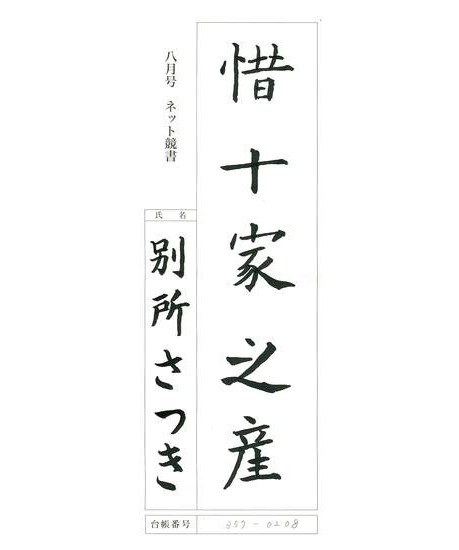 惜十家之産
八月号 ネット競書
氏 名
別所さつき
台帳番号
357-0208